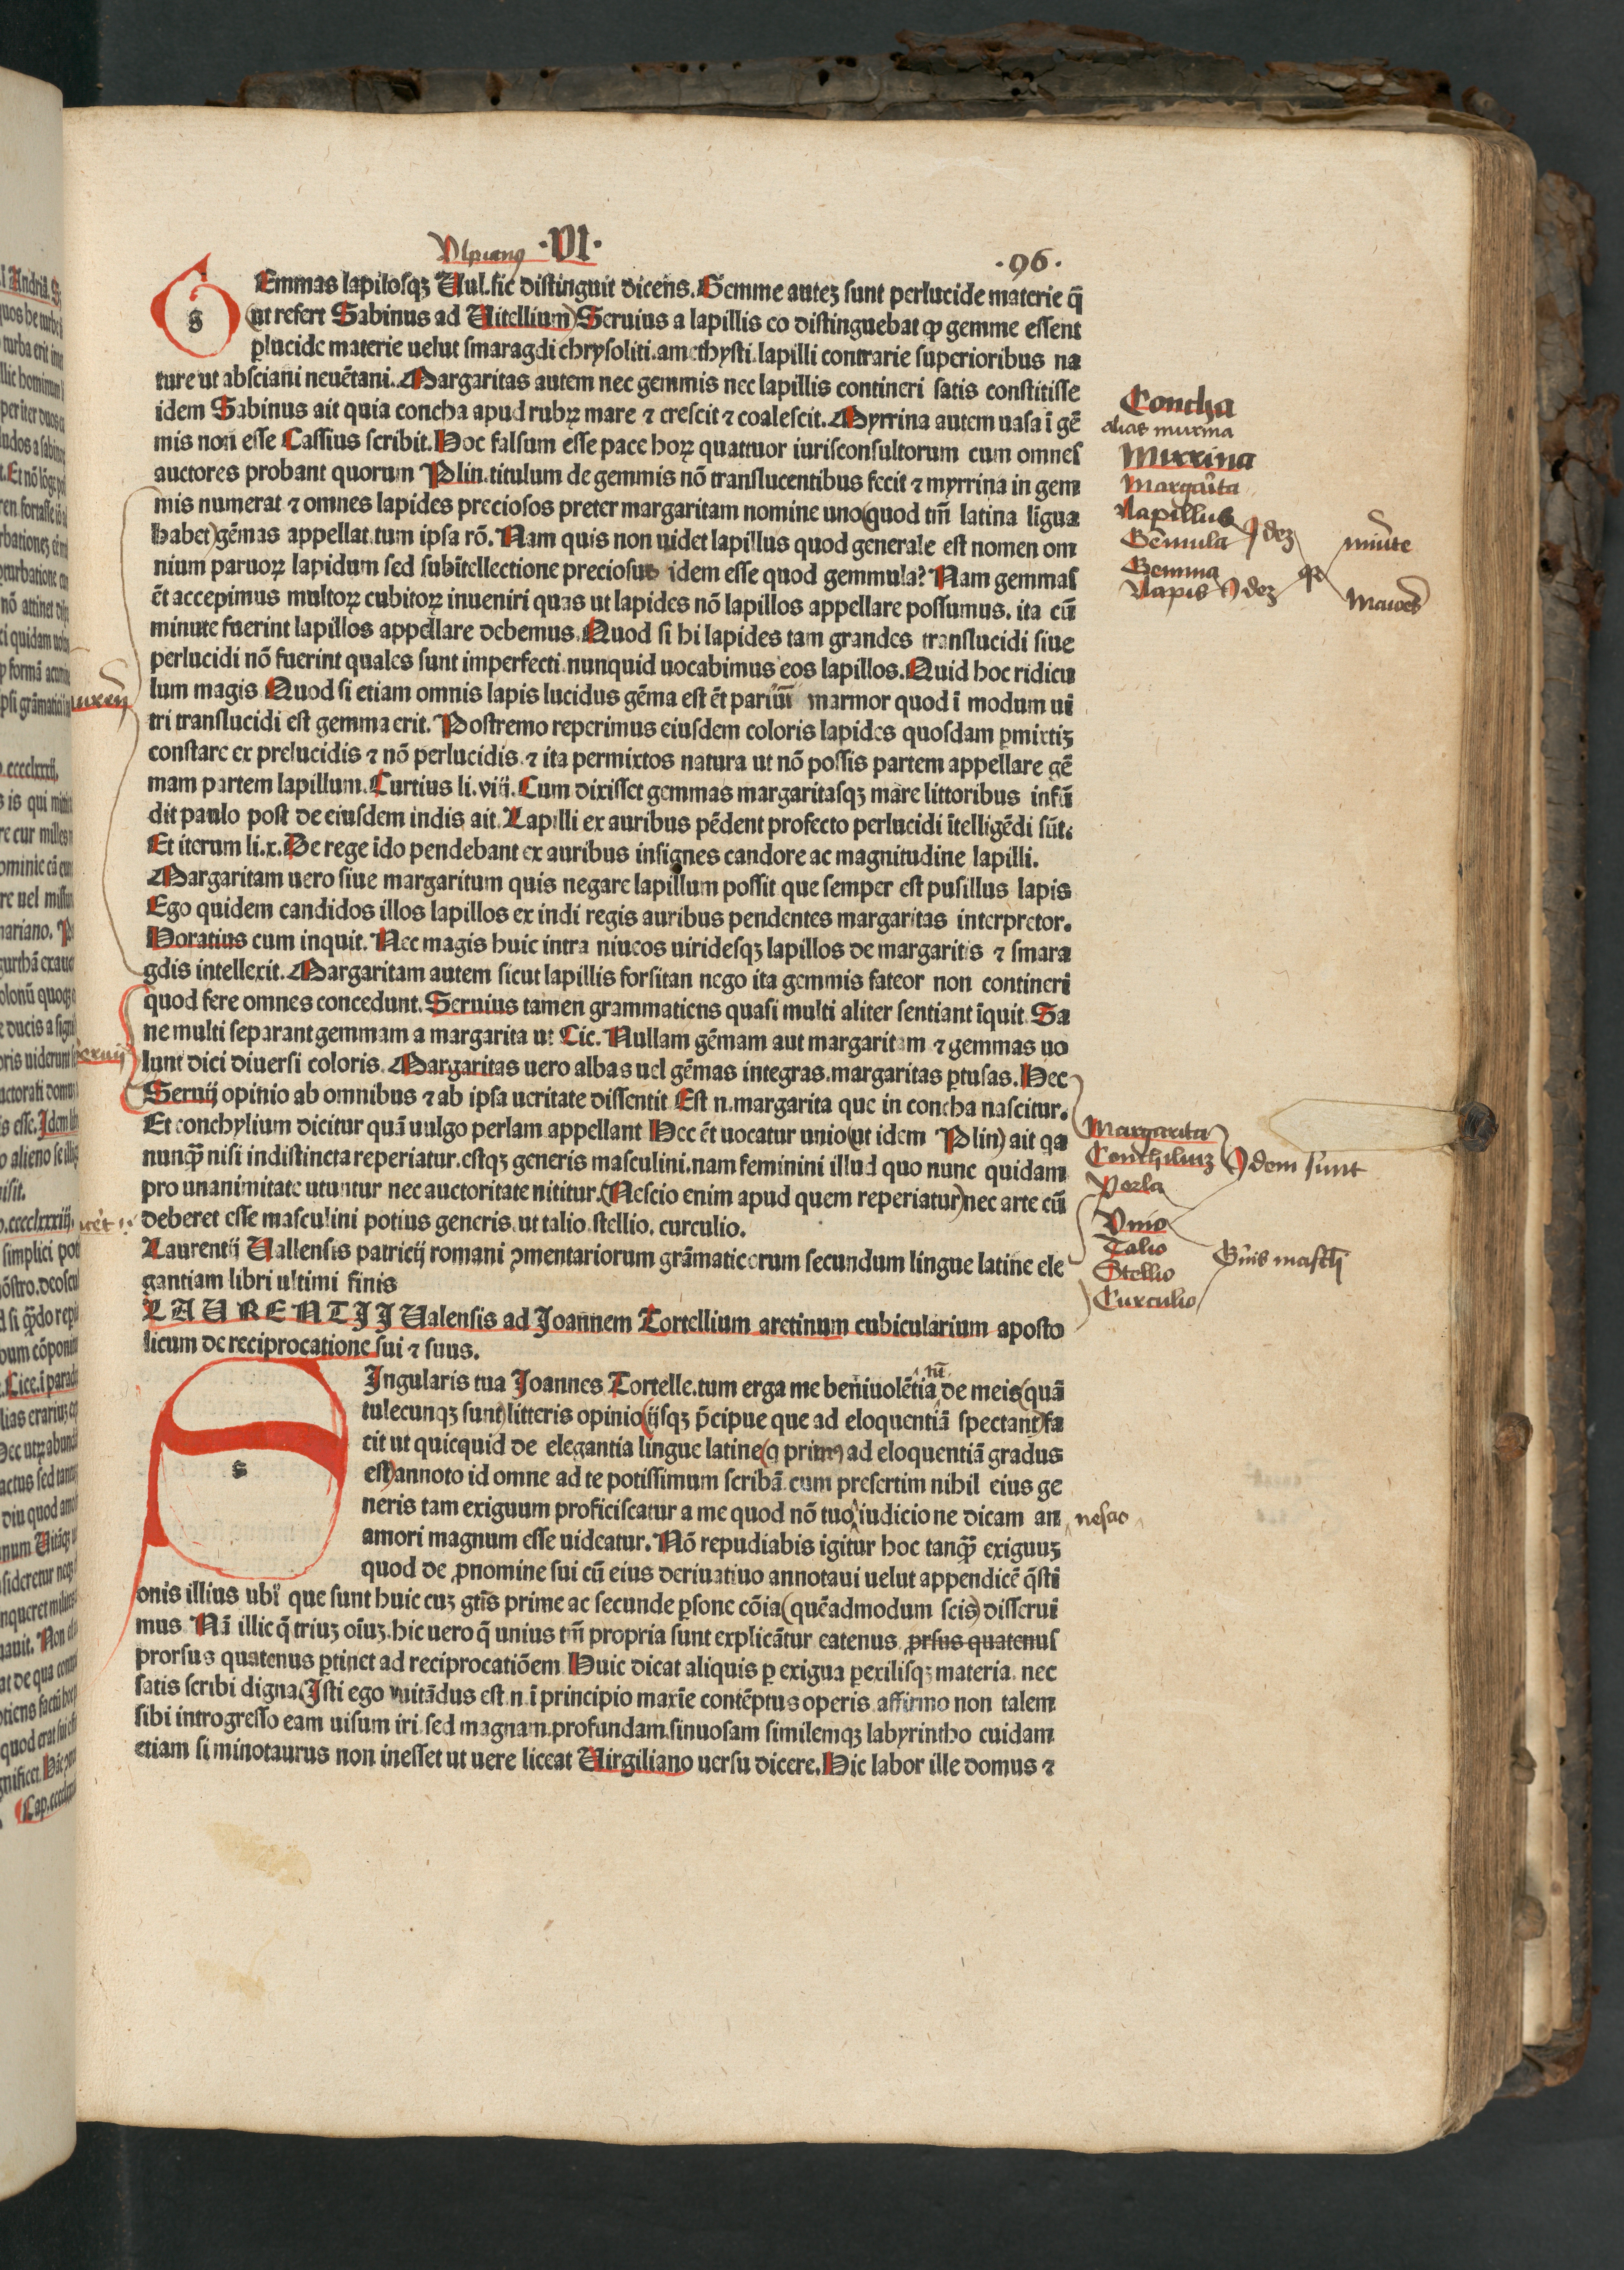 Vlpianꝰ ·VI· ·96·
GEmmas lapilosqꝫ Vul. sic distinguit dicens. Gemme auteꝫ sunt perlucide materie q̄
(ut refert Sabinus ad Uitellium) Seruius a lapillis eo distinguebat ꝙ gemme essent
ꝑlucide materie uelut smaragdi chrysoliti. amethysti. lapilli contrarie superioribus na
ture ut absciani neuētani. Margaritas autem nec gemmis nec lapillis contineri satis constitisse
idem Sabinus ait quia concha apud rubꝝ mare ⁊ crescit ⁊ coalescit. Myrrina autem uasa ī gē
mis non esse Cassius scribit. Hoc falsum esse pace hoꝝ quattuor iurisconsultorum cum omnes
auctores probant quorum Plin. titulum de gemmis nō translucentibus fecit ⁊ myrrina in gem
mis numerat ⁊ omnes lapides preciosos preter margaritam nomine uno (quod tm̄ latina līgua
habet) gēmas appellat. tum ipsa rō. Nam quis non uidet lapillus quod generale est nomen om
nium paruoꝝ lapidum sed subītellectione preciosus idem esse quod gemmula? Nam gemmas
ēt accepimus multoꝝ cubitoꝝ inueniri quas ut lapides nō lapillos appellare possumus. ita cū
minute fuerint lapillos appellare debemus. Quod si hi lapides tam grandes translucidi siue
perlucidi nō fuerint quales sunt imperfecti. nunquid uocabimus eos lapillos. Quid hoc ridicu
lum magis Quod si etiam omnis lapis lucidus gēma est ēt pariū marmor quod ī modum ui
tri translucidi est gemma erit. Postremo reperimus eiusdem coloris lapides quosdam ꝑmixtiꝫ
constare ex prelucidis ⁊ nō perlucidis. ⁊ ita permixtos natura ut nō possis partem appellare gē
mam partem lapillum. Curtius li. viij. Cum dixisset gemmas margaritasqꝫ mare littoribus infū
dit paulo post de eiusdem indis ait. Lapilli ex auribus pēdent profecto perlucidi ītelligēdi sūt.
Et iterum li. x. De rege īdo pendebant ex auribus insignes candore ac magnitudine lapilli.
Margaritam uero siue margaritum quis negare lapillum possit que semper est pusillus lapis
Ego quidem candidos illos lapillos ex indi regis auribus pendentes margaritas interpretor.
Horatius cum inquit. Nec magis huic intra niueos uiridesqꝫ lapillos de margaritis ⁊ smara
gdis intellexit. Margaritam autem sicut lapillis forsitan nego ita gemmis fateor non contineri
quod fere omnes concedunt. Seruius tamen grammaticus quasi multi aliter sentiant īquit. Sa
ne multi separant gemmam a margarita ut Cic. Nullam gēmam aut margaritam ⁊ gemmas uo
lunt dici diuersi coloris. Margaritas uero albas uel gēmas integras. margaritas ꝑtusas. Hec
Seruij opinio ab omnibus ⁊ ab ipsa ueritate dissentit Est n. margarita que in concha nascitur.
Et conchylium dicitur quā uulgo perlam appellant Hec ēt uocatur unio (ut idem Plin) ait qa
nunqꝫ nisi indistincta reperiatur. estqꝫ generis masculini. nam feminini illud quo nunc quidam
pro unanimitate utuntur nec auctoritate nititur. (Nescio enim apud quem reperiatur) nec arte cū
deberet esse masculini potius generis. ut talio. stellio. curculio.
Laurentij Uallensis patricij romani ꝯmentariorum grāmaticorum secundum lingue latine ele
gantiam libri ultimi finis
LAURENTIJ Ualensis ad Joannem Tortellium aretinum cubicularium aposto
licum de reciprocatione sui ⁊ suus.
SIngularis tua Joannes Tortelle. tum erga me beniuolētia tū de meis (quā
tulecunqꝫ sunt) litteris opinio (ijsqꝫ p̄cipue que ad eloquentiā spectant) fa
cit ut quicquid de elegantia lingue latine (q primꝰ ad eloquentiā gradus
est) annoto id omne ad te potissimum scribā. cum presertim nihil eius ge
neris tam exiguum proficiscatur a me quod nō tuo iudicio ne dicam an nescio
amori magnum esse uideatur. Nō repudiabis igitur hoc tanqꝫ exiguuꝫ
quod de ꝓnomine sui cū eius deriuatiuo annotaui uelut appendicē q̄sti
onis illius ubi que sunt huic cuꝫ gtīs prime ac secunde ꝑsone cōia (quēadmodum scis) disserui
mus Nā illic q̄ triuꝫ oīuꝫ. hic uero q̄ unius tm̄ propria sunt explicātur eatenus ꝓrsus quatenus
prorsus quatenus ꝑtinet ad reciprocatiōem Huic dicat aliquis ꝑ exigua ꝑexilisqꝫ materia. nec
satis scribi digna (Isti ego uitādus est. n. ī principio maxīe contēptus operis affirmo non talem
sibi introgresso eam uisum iri. sed magnam. profundam. sinuosam similemqꝫ labyrintho cuidam
etiam si minotaurus non inesset ut uere liceat Uirgiliano uersu dicere. Hic labor ille domus ⁊
Concha
alias murina
Mirrina
Margarita
Lapillus
Gemula
Ideꝫ
Gemma
Lapis
Ideꝫ
minute
Maiores
Margarita
Conchiliuꝫ
Perla
Idem sunt
Vnio
Talio
Stellio
Curculio
Gn̄is mascĺi